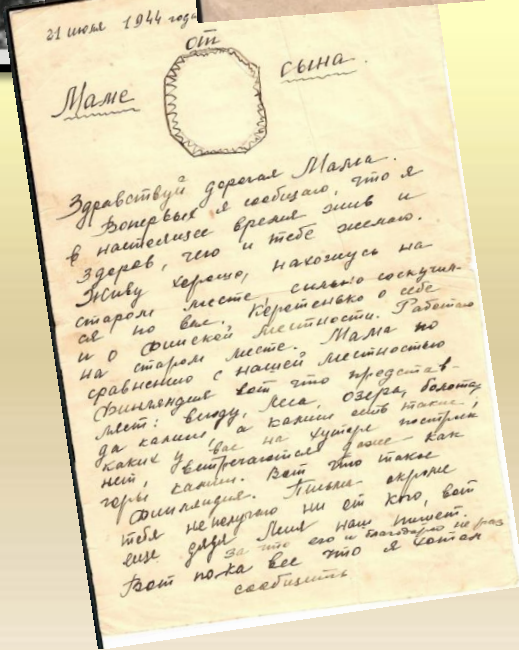 21 июня 1944 года
от
Маме сына.
Здравствуй дорогая Мама.
Вопервых я сообщаю, что я
в настоящее время жив и
здоров, чего и тебе желаю.
Живу хорошо, нахожусь на
старом месте, сильно соскучил-
ся по вам. Коротенько о себе
и о Финской местности. Работаю
на старом месте. Мама по
сравнению с нашей местностью
Финляндия вот что представ-
ляет: всюду, леса, озера, болота,
да камни а камни есть такие,
каких у вас на хуторе построек
нет, встречаются даже как
горы камни. Вот что такое
Финляндия. Письма окроме
тебя неполучаю ни от кого, вот
еще дядя нам пишет.
за что его и благодарю не раз
Вот пока все что я хотел
сообщить